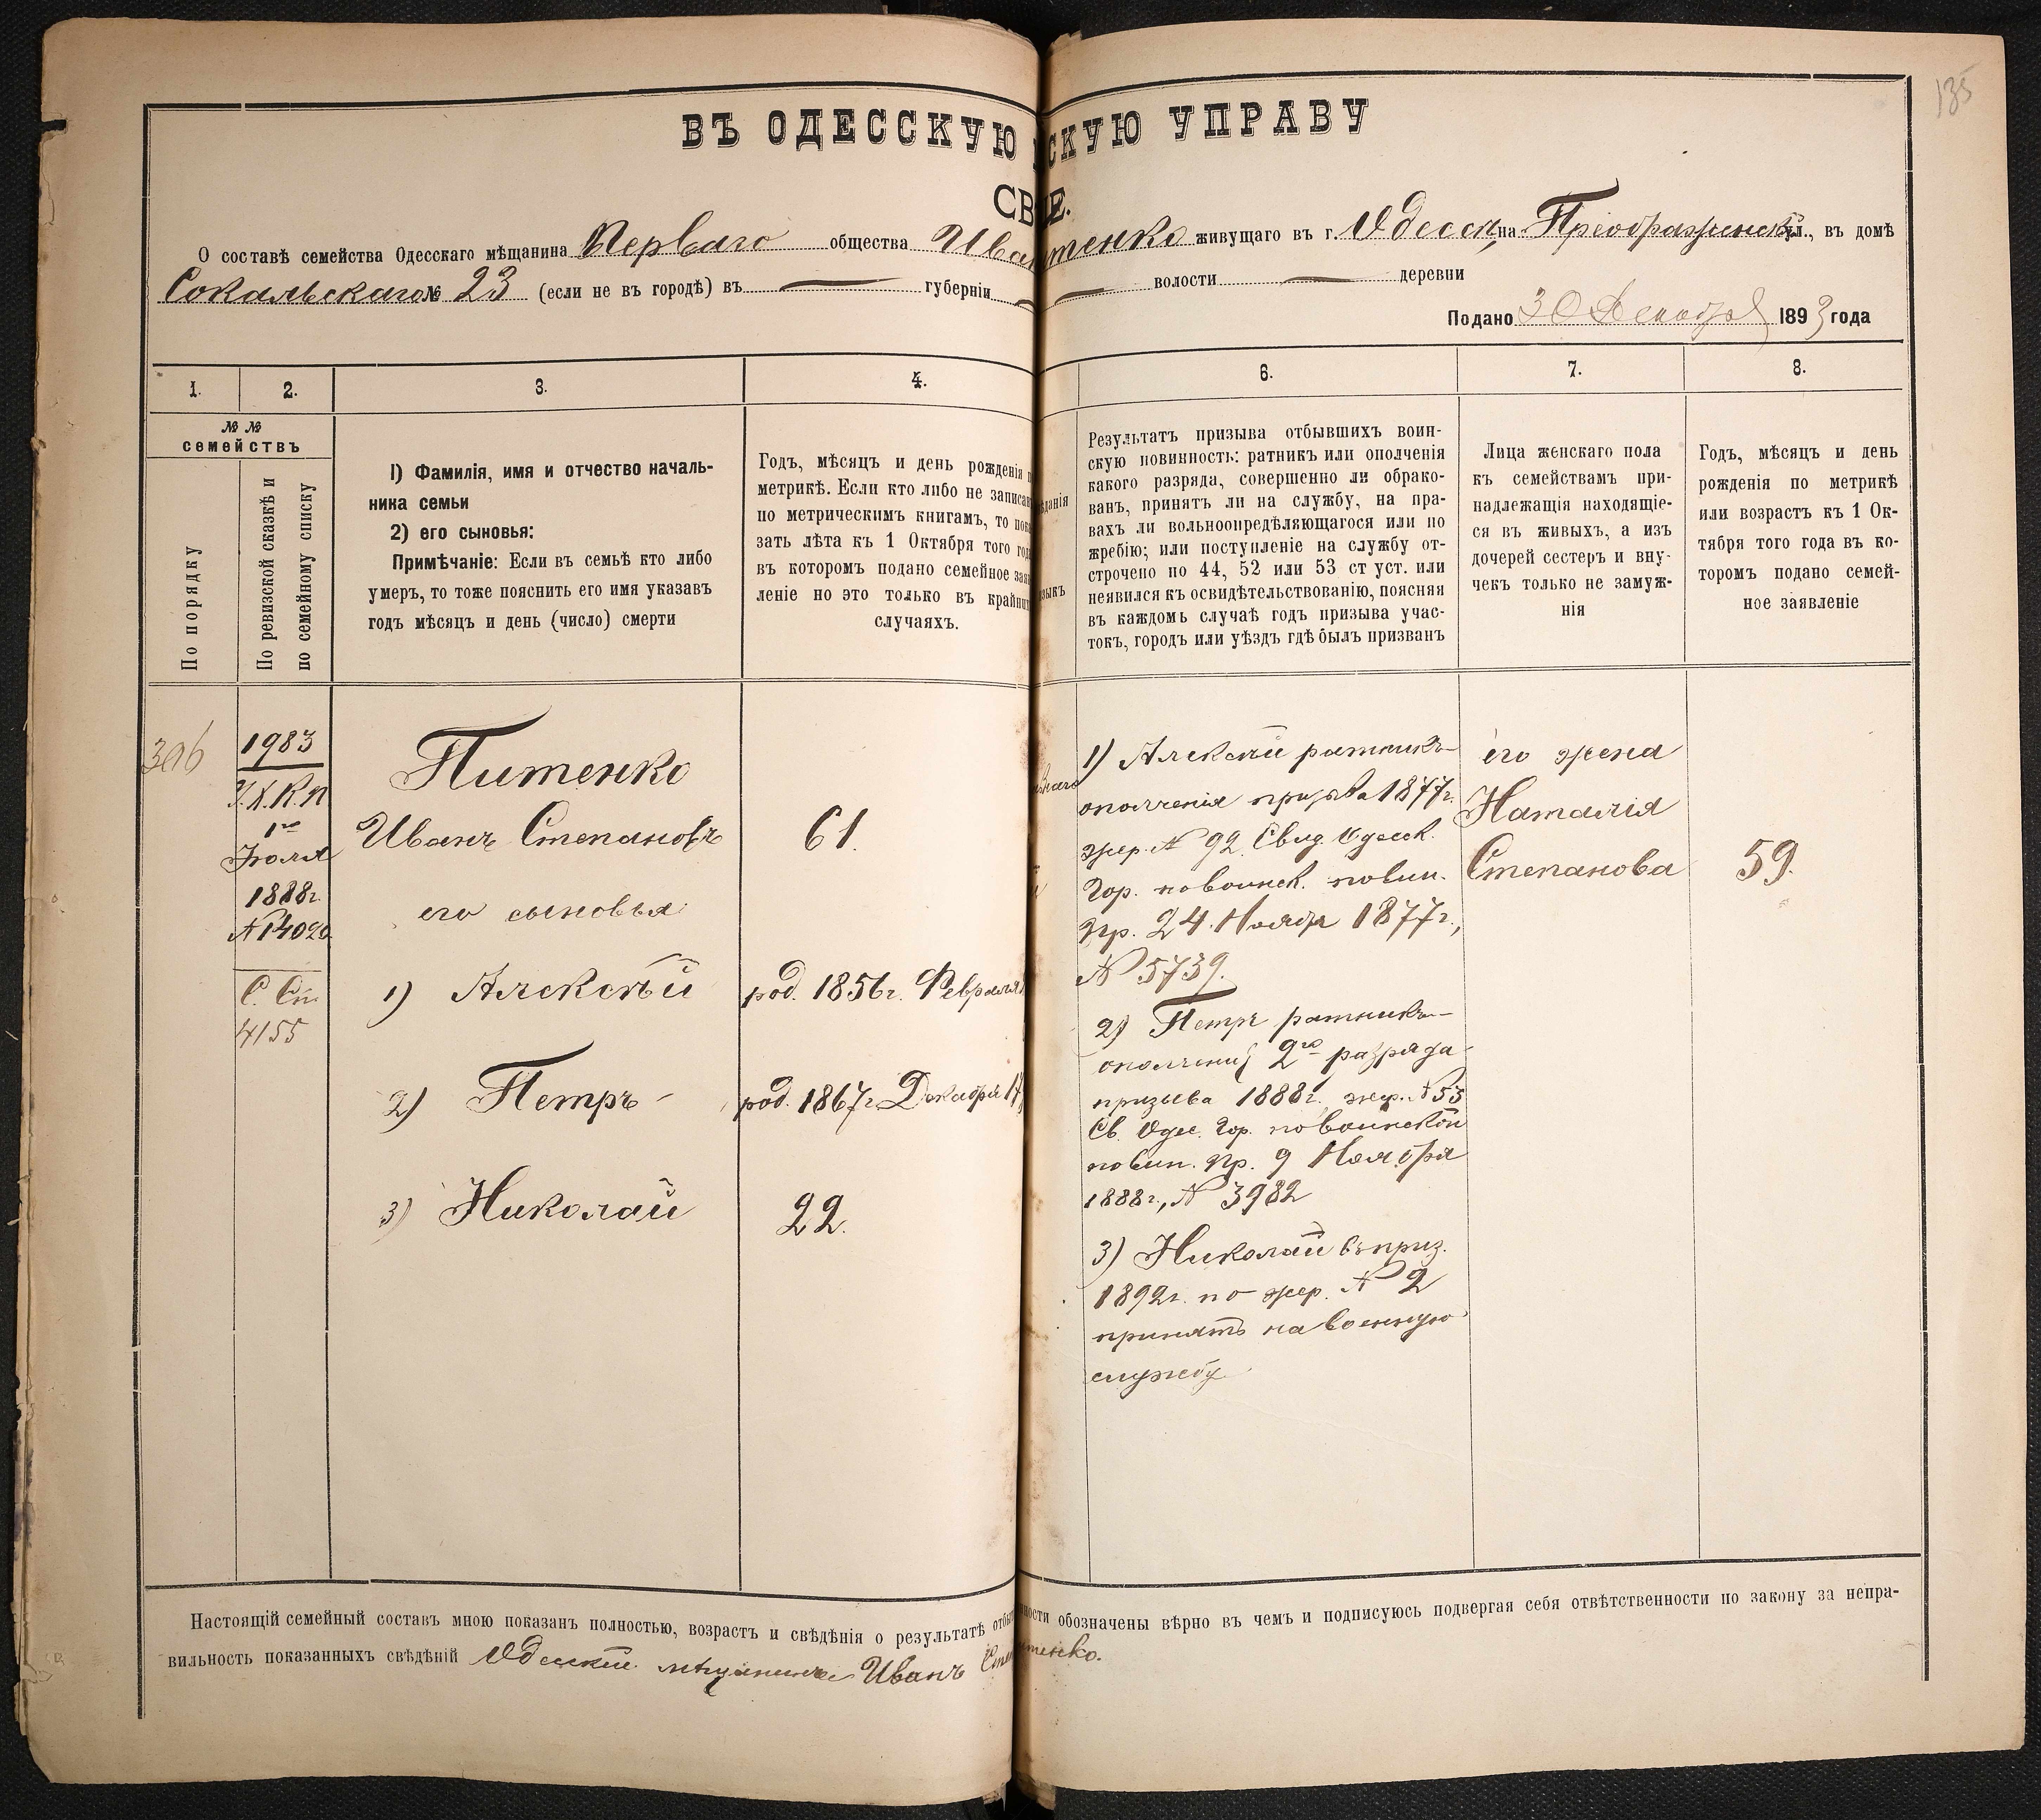 135
ВЪ ОДЕССКУЮ СКУЮ УПРАВУ
СВ Е.
О составѣ семейства Одесскаго мѣщанина Перваго общества Ива тенко живущаго въ г. Одессѣ, на Преображенской ул., въ домѣ
Сокальскаго № 23 (если не въ городѣ) въ — губерніи — волости — деревни
Подано 30 Декабря 1893 года
1. 2. 3. 4. 6. 7. 8.
№ №
семействъ
По порядку
По ревизской сказкѣ и
по семейному списку
1) Фамилія, имя и отчество началь-
ника семьи
2) его сыновья:
Примѣчаніе: Если въ семьѣ кто либо
умеръ, то тоже пояснить его имя указавъ
годъ мѣсяцъ и день (число) смерти
Годъ, мѣсяцъ и день рожденія п
метрикѣ. Если кто либо не записан
по метрическимъ книгамъ, то пока
зать лѣта къ 1 Октября того года
въ которомъ подано семейное заяв
леніе но это только въ крайних
случаяхъ.
Результатъ призыва отбывшихъ воин-
скую повинность: ратникъ или ополченія
какого разряда, совершенно ли обрако-
ванъ, принятъ ли на службу, на пра-
вахъ ли вольноопредѣляющагося или по
жребію; или поступленіе на службу от-
строчено по 44, 52 или 53 ст уст. или
неявился къ освидѣтельствованію, поясняя
въ каждомъ случаѣ годъ призыва учас-
токъ, городъ или уѣздъ гдѣ былъ призванъ
Лица женскаго пола
къ семействамъ при-
надлежащія находящіе-
ся въ живыхъ, а изъ
дочерей сестеръ и вну-
чекъ только не замуж-
нія
Годъ, мѣсяцъ и день
рожденія по метрикѣ
или возрастъ къ 1 Ок-
тября того года въ ко-
торомъ подано семей-
ное заявленіе
306
1983
У.Х.К.П
1го
Іюля
1888г
№14020
С. Сп.
4155
Питенко
Иванъ Степановъ
его сыновья
1) Алексѣй
2) Петръ
3) Николай
61.
род. 1856г. Февраля
род. 1867г. Декабря 17
22.
1) Алексѣй ратникъ
ополченія призыва 1877г.
жер. № 92. Свид. Одесск.
Гор. по воинск. повин.
Пр. 24 Ноября 1877г.,
№ 5739.
2) Петръ ратникъ
ополченія 2го разряда
призыва 1888г. жер. № 53
Св. Одес. Гор. по воинской
повин. Пр. 9 Ноября
1888г., № 3982
3) Николай въ приз.
1892г. по жер. № 2
принятъ на военную
службу
его жена
Наталія
Степанова
59.
Настоящій семейный составъ мною показанъ полностью, возрастъ и свѣдѣнія о результатѣ отбы ности обозначены вѣрно въ чемъ и подписуюсь подвергая себя отвѣтственности по закону за непра-
вильность показанныхъ свѣдѣній Одесскій мѣщанинъ Иванъ Сте тенко.